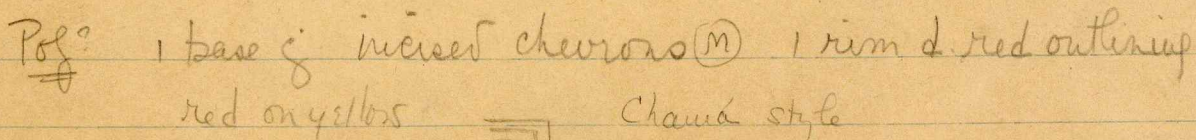 Pof: 1 base g incised chevrons (M) 1 rim d. red outlining
red on yellow Chamá style